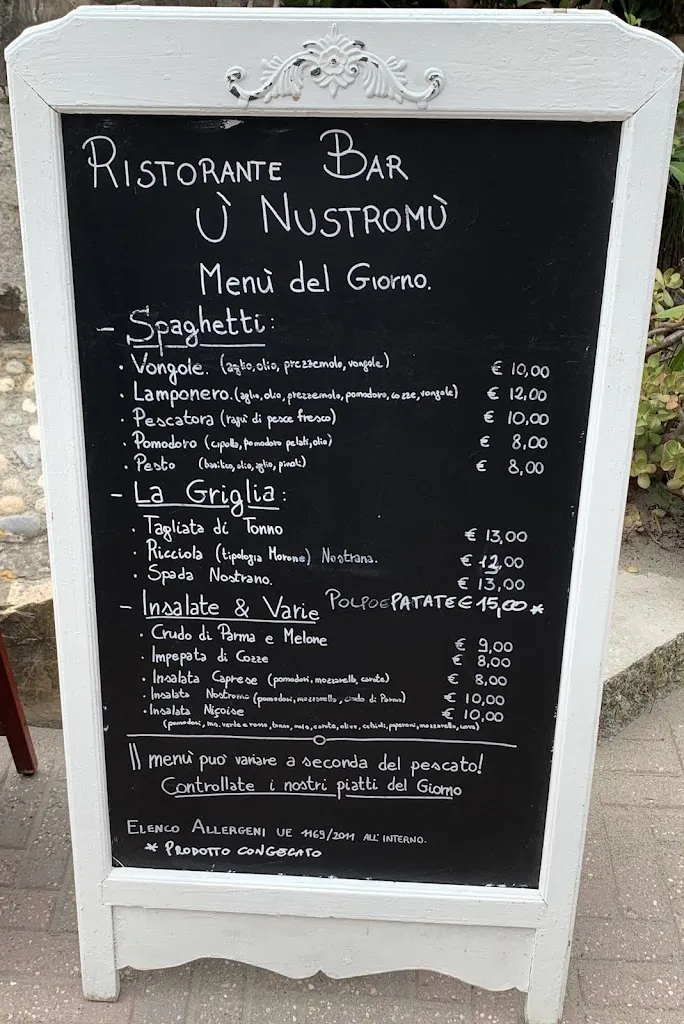 RISTORANTE BAR
Ù NUSTROMÙ
Menù del Giorno.
- Spaghetti:
· Vongole. (aglio, olio, prezzemolo, vongole) € 10,00
· Lamponero. (aglio, olio, prezzemolo, pomodoro, cozze, vongole) € 12,00
· Pescatora (ragù di pesce fresco) € 10,00
· Pomodoro (cipolla, pomodoro pelati, olio) € 8,00
· Pesto (basilico, olio, aglio, pinoli) € 8,00
- La Griglia:
· Tagliata di Tonno € 13,00
· Ricciola (tipologia Morone) Nostrana. € 12,00
· Spada Nostrano. € 13,00
POLPO E PATATE € 15,00 *
- Insalate & Varie
· Crudo di Parma e Melone € 9,00
· Impepata di Cozze € 8,00
· Insalata Caprese (pomodori, mozzarella, carote) € 8,00
· Insalata Nostromo (pomodori, mozzarella, crudo di Parma) € 10,00
· Insalata Niçoise € 10,00
(pomodori, ins. verde e rossa, tonno, mais, carote, olive, cetrioli, peperoni, mozzarella, uova)
Il menù può variare a seconda del pescato!
Controllate i nostri piatti del Giorno
ELENCO ALLERGENI UE 1169/2011 ALL'INTERNO.
* PRODOTTO CONGELATO